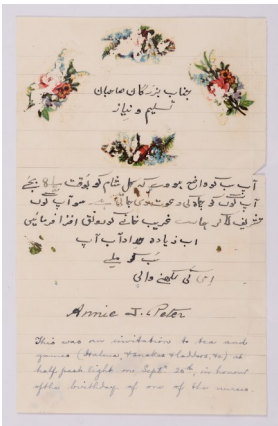 بخدمت بزرگان صاحبان
تسلیم و نیاز
آپ سب کو واضح ہووے کہ کل شام کو بوقت ساڑھے 8 بجے
آپ لوگوں کو چاء کی دعوت دی جاتی ہے سو آپ لوگ
تشریف لا کر غریب خانے کو رونق افزا فرمائیں
اب زیادہ حد ادب آپ
سب کو ملے
لکھنے والی
Annie J. Peter
This was an invitation to tea and
games (Halma, Snakes & ladders, &c) at
half past eight on Septr 20th, in honour
of the birthday of one of the nurses.